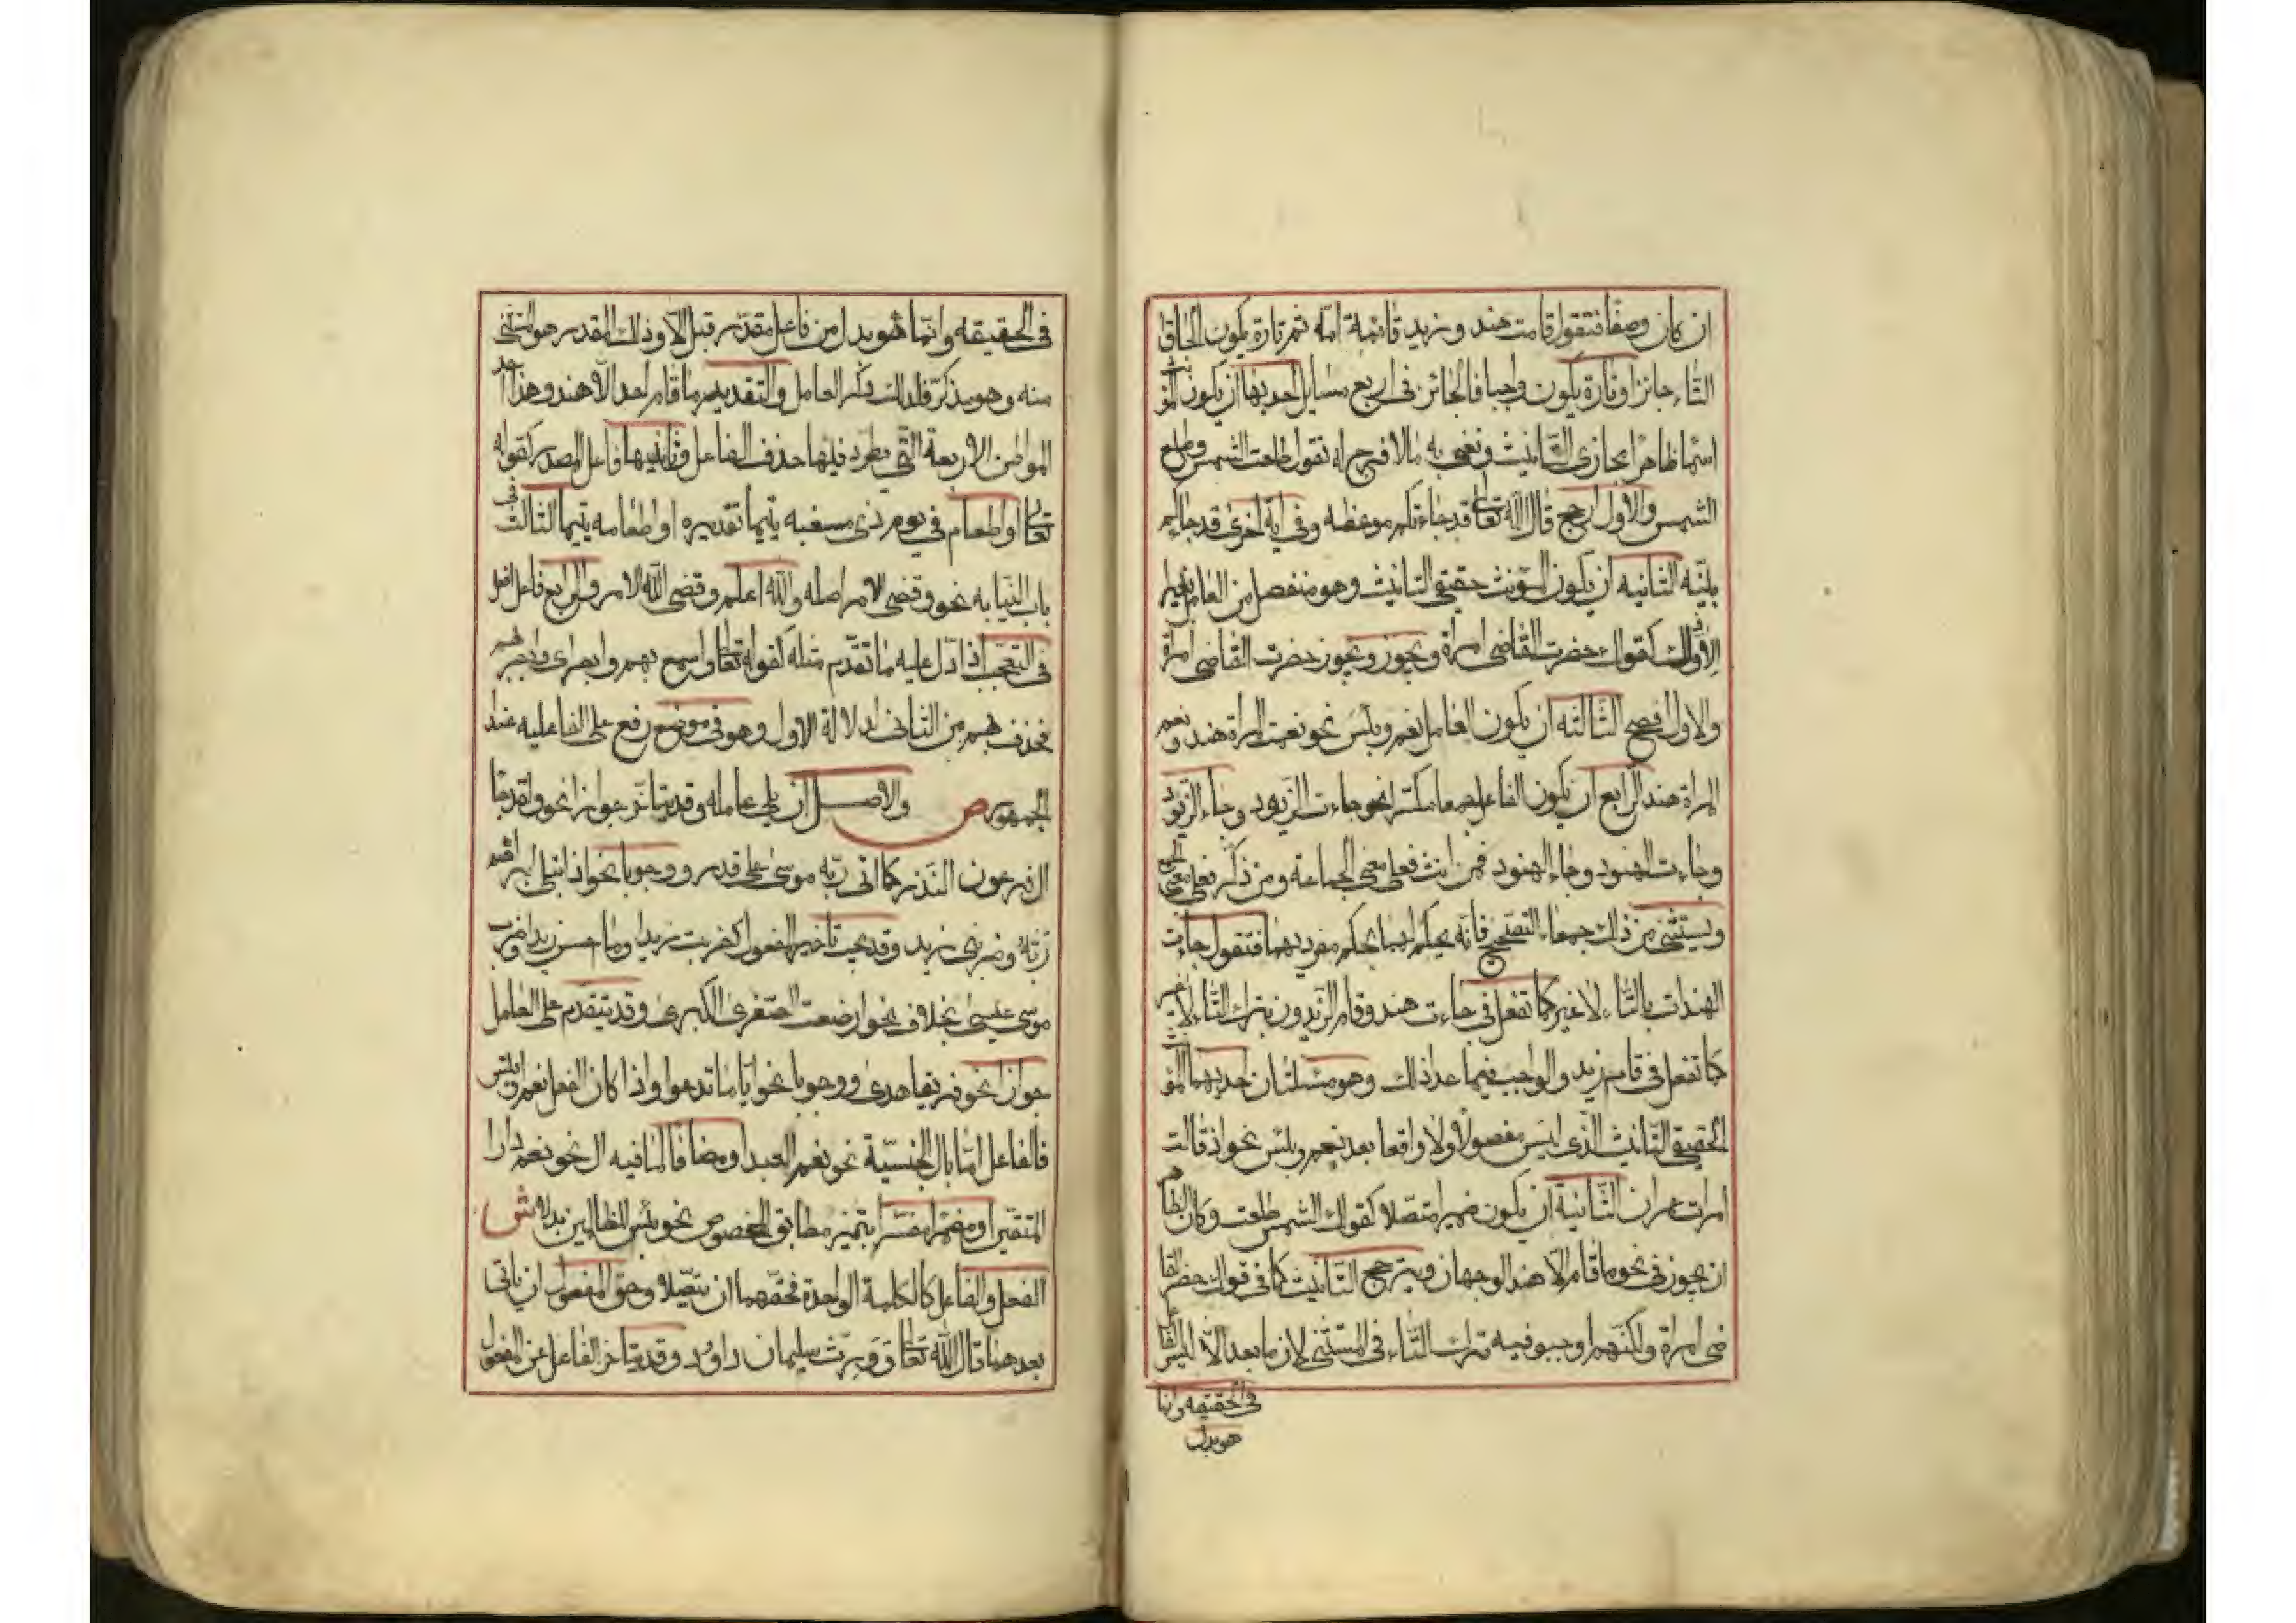 ان كان وصفا فتقول قامت هند و زيد قائمة امه ثم تارة يكون الحاق
التاء جائزا وتارة يكون واجبا فالجائز فى اربع مسايل احديها ان يكون المؤنث
اسما ظاهرا مجازى التانيث ونعنى به مالا فرج له تقول طلعت الشمس وطلع
الشمس والاول ارجح قال الله تعالى قد جاءتكم موعظه وفى اية اخرى قد جاءكم
بينه الثانيه ان يكون المؤنث حقيقى التانيث وهو منفصل من العامل بغير
الا وذلك كقولك حضرت القاضى امراة ويجوز ويجوز حضرت القاضى امراة
والاول افصح الثالثه ان يكون العامل نعم وبئس نحو نعمت المراة هند ونعم
المراة هند الرابع ان يكون الفاعل جمعا مكسرا نحو جاءت الزيود وجاء الزيود
وجاءت الهنود وجاء الهنود فمن انث فعلى معنى الجماعة ومن ذكر فعلى معنى الجمع
ويستثنى من ذلك جمعا التصحيح فانه يحكم لهما بحكم مفرديهما فتقول جاءت
الهندات بالتاء لا غير كما تفعل فى جاءت هند وقام الزيدون بترك التاء لا غير
كما تفعل فى قام زيد والواجب فيما عدا ذلك وهو مسئلتان احديهما المؤنث
الحقيقى التانيث الذى ليس مفصولا ولا واقعا بعد نعم وبئس نحو اذ قالت
امرات عمران الثانية ان يكون ضميرا متصلا كقولك الشمس طلعت وكان الظاهر
ان يجوز فى نحو ما قام الا هند الوجهان ويترجح التانيث كما فى قولك حضر القا
ضى امراة ولكنهم اوجبو فيه ترك التاء فى المستثنى لان ما بعد الا ليس الفاعل
فى الحقيقه وانما
هو بدل
فى الحقيقه وانما هو بدل من فاعل مقدر قبل الا وذلك المقدر هو المستثنى
منه وهو مذكر فلذلك ذكر العامل والتقدير ما قام احد الا هند وهذا احد
المواطن الاربعة التى يطرد فيها حذف الفاعل وثانيها فاعل المصدر كقوله
تعالى او اطعام فى يوم ذى مسغبه يتيما تقديره او اطعامه يتيما الثالث فى
باب النيابه نحو وقضى الامر اصله والله اعلم وقضى الله الامر والرابع فاعل افعل
فى التعجب اذا دل عليه ما تقدم مثله كقوله تعالى اسمع بهم وابصر اى وابصر بهم
فحذف بهم من الثانى لدلالة الاول وهو فى موضع رفع على الفاعليه عند
الجمهور ص والاصل ان يلى عامله وقد يتاخر جوازا نحو ولقد جاء
ال فرعون النذر كما اتى ربه موسى على قدر ووجوبا نحو اذ ابتلى ابراهيم
ربه وضربنى زيد وقد يجب تاخير المفعول كضربت زيدا وما احسن زيدا وضرب
موسى عيسى بخلاف نحو ارضعت الصغرى الكبرى وقد يتقدم على العامل
جوازا نحو فريقا هدى ووجوبا نحو اياما تدعوا واذا كان الفعل نعم او بئس
فالفاعل اما بال الجنسية نحو نعم العبد او مضافا لما فيه ال نحو نعم دار
المتقين او مضمرا مفسرا بتميز مطابق للمخصوص نحو بئس للظالمين بدلا ش
الفعل والفاعل كالكلمة الواحدة فحقهما ان يتصلا وحق المفعول ان ياتى
بعدهما قال الله تعالى وورث سليمان داود وقد يتاخر الفاعل عن المفعول